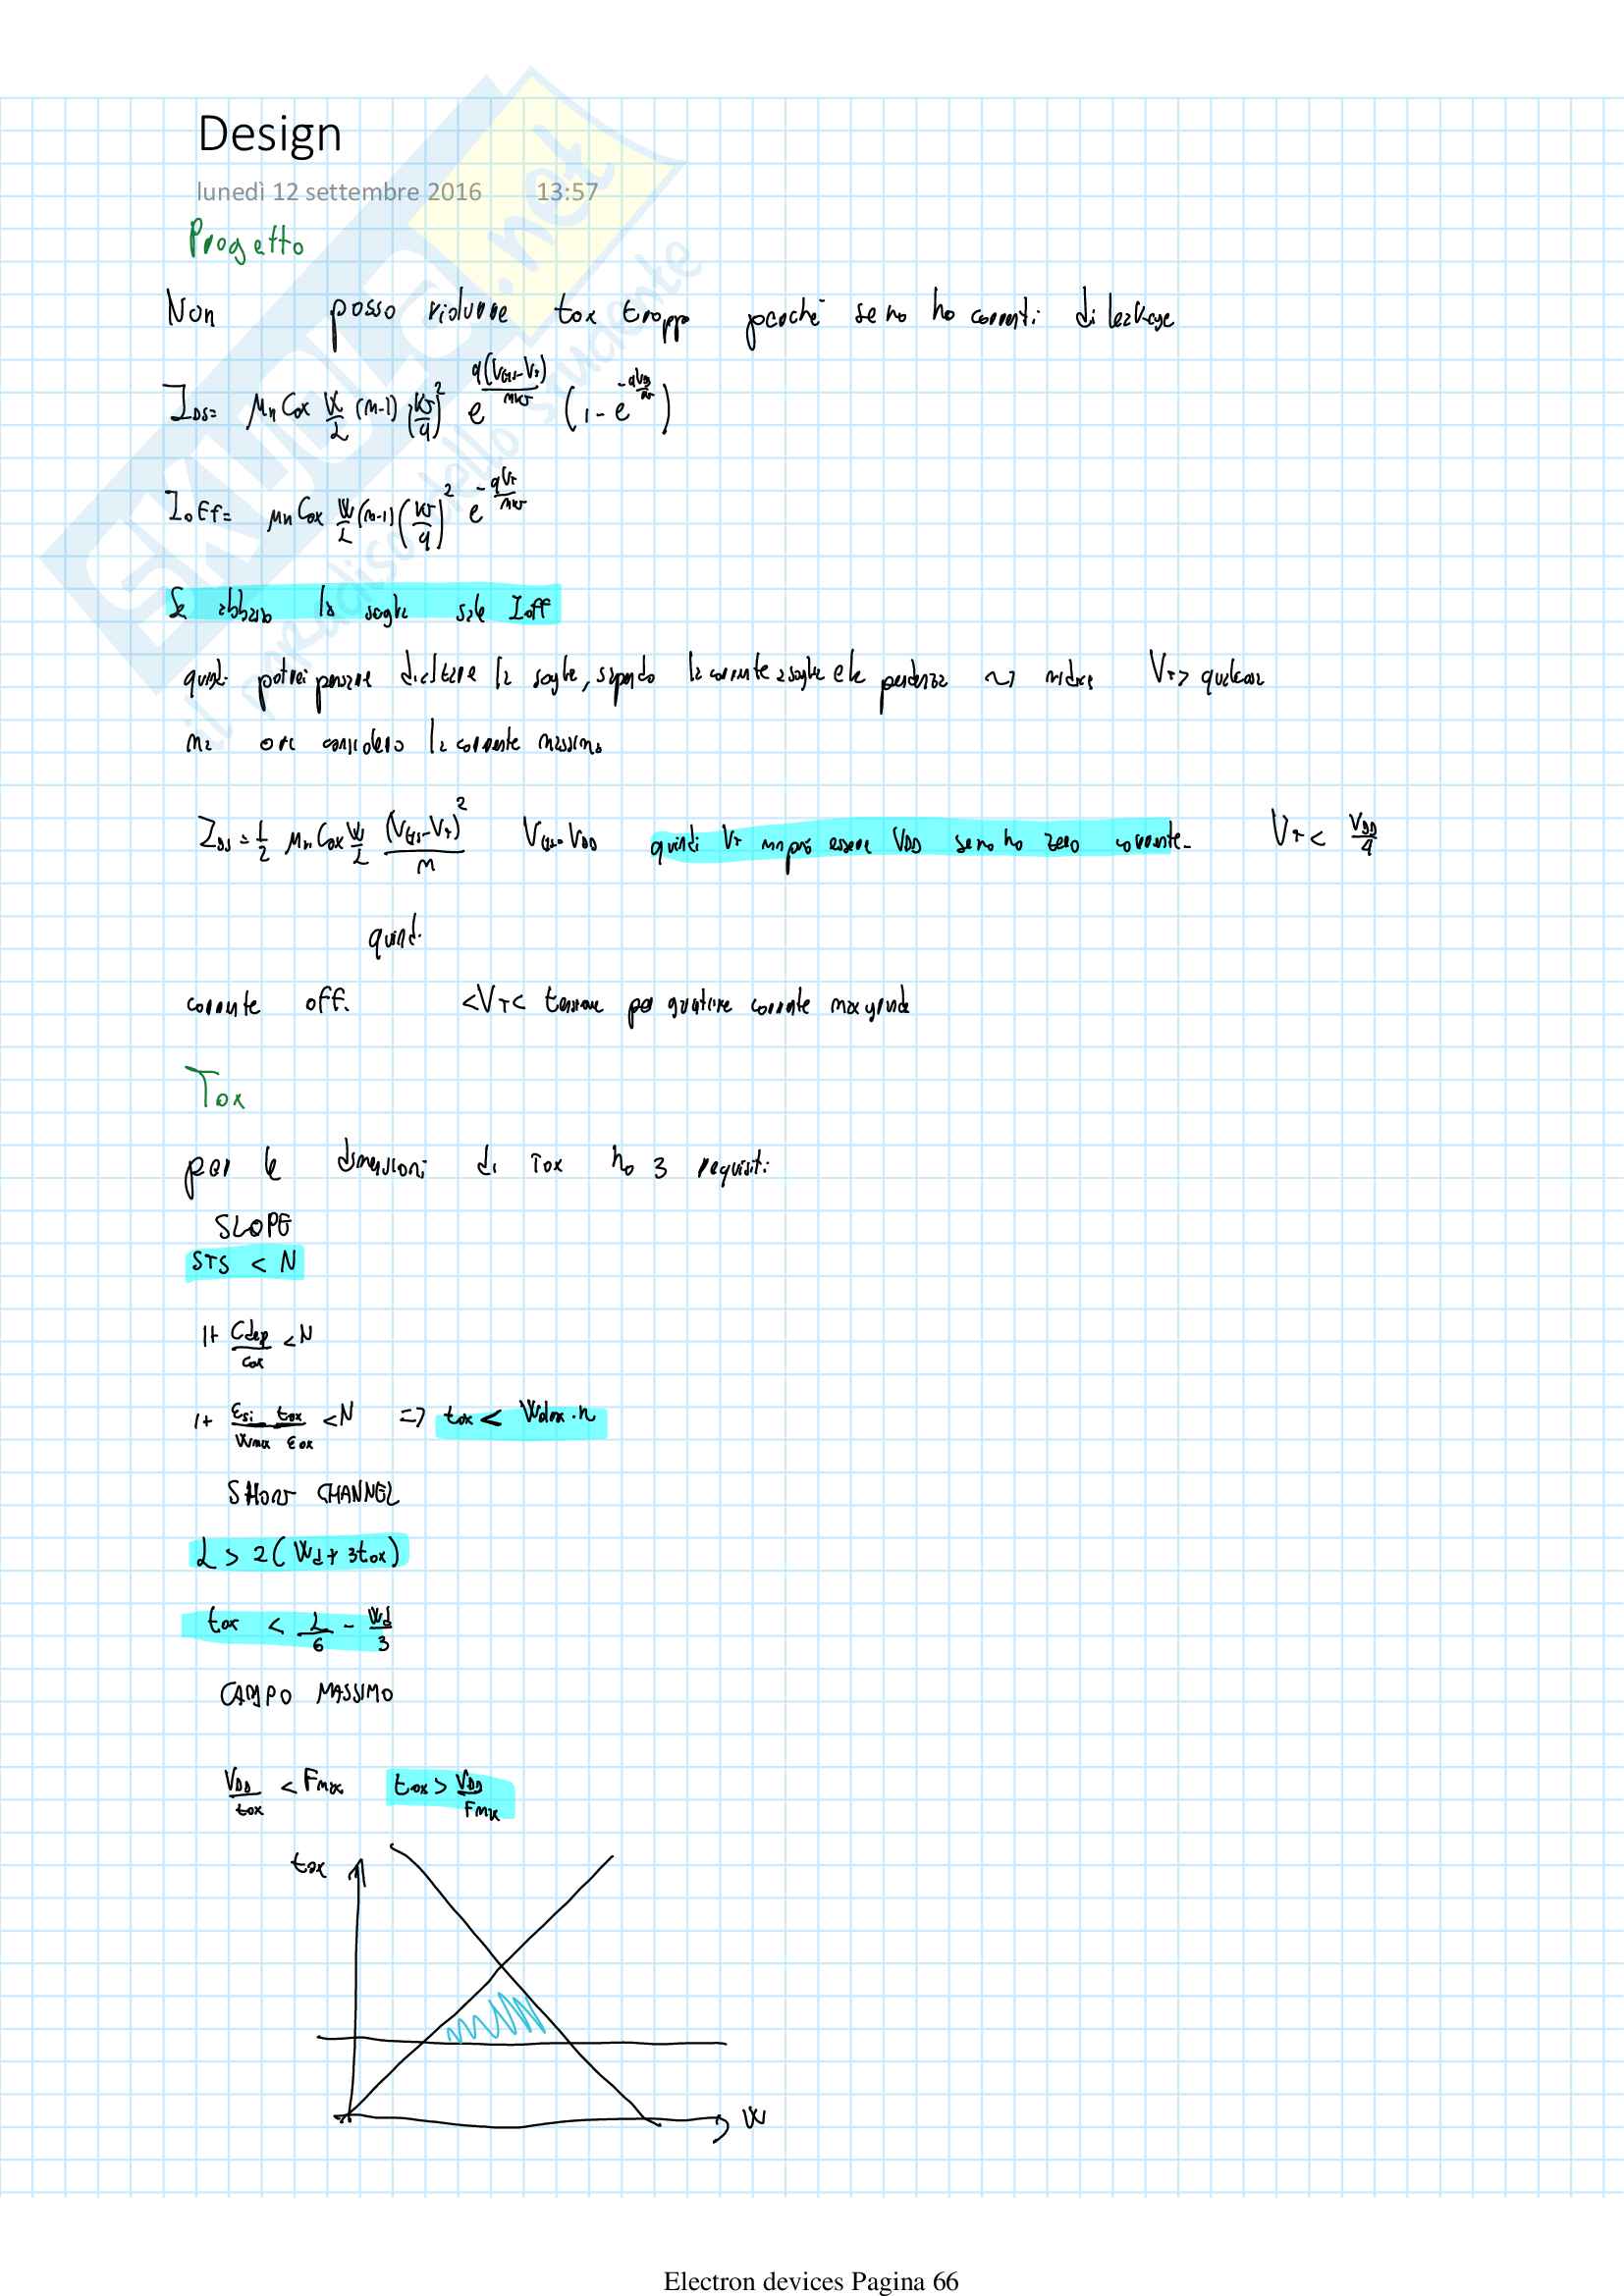 Design
lunedì 12 settembre 2016 13:57
SKUOLA.net
il paradiso dello studente
Progetto
Non posso ridurre tox troppo perché se no ho correnti di leakage
I_DS = μn Cox W/L (m-1) (kT/q)^2 e^(q(VGS-VT)/mkT) (1 - e^(-qVDS/kT))
I_off = μn Cox W/L (m-1) (kT/q)^2 e^(-qVT/mkT)
Se abbasso la soglia sale Ioff
quindi potrei pensare di alzare la soglia, sapendo la corrente a soglia e la pendenza ~> VT > qualcosa
ma ora considero la corrente massima
I_DS = 1/2 μn Cox W/L (VGS-VT)^2/m VGS=VDD quindi VT non può essere VDD se no ho zero corrente. VT < VDD/4
quindi
corrente off. < VT < tensione per garantire corrente max grande
Tox
per le dimensioni di Tox ho 3 requisiti
SLOPE
STS < N
1+ Cdep/Cox < N
1+ εsi tox/Wmax εox < N => tox < Wdmx . n
SHORT CHANNEL
L > 2(Wd + 3tox)
tox < L/6 - Wd/3
CAMPO MASSIMO
VDD/tox < Fmx tox > VDD/Fmx
tox
W
Electron devices Pagina 66